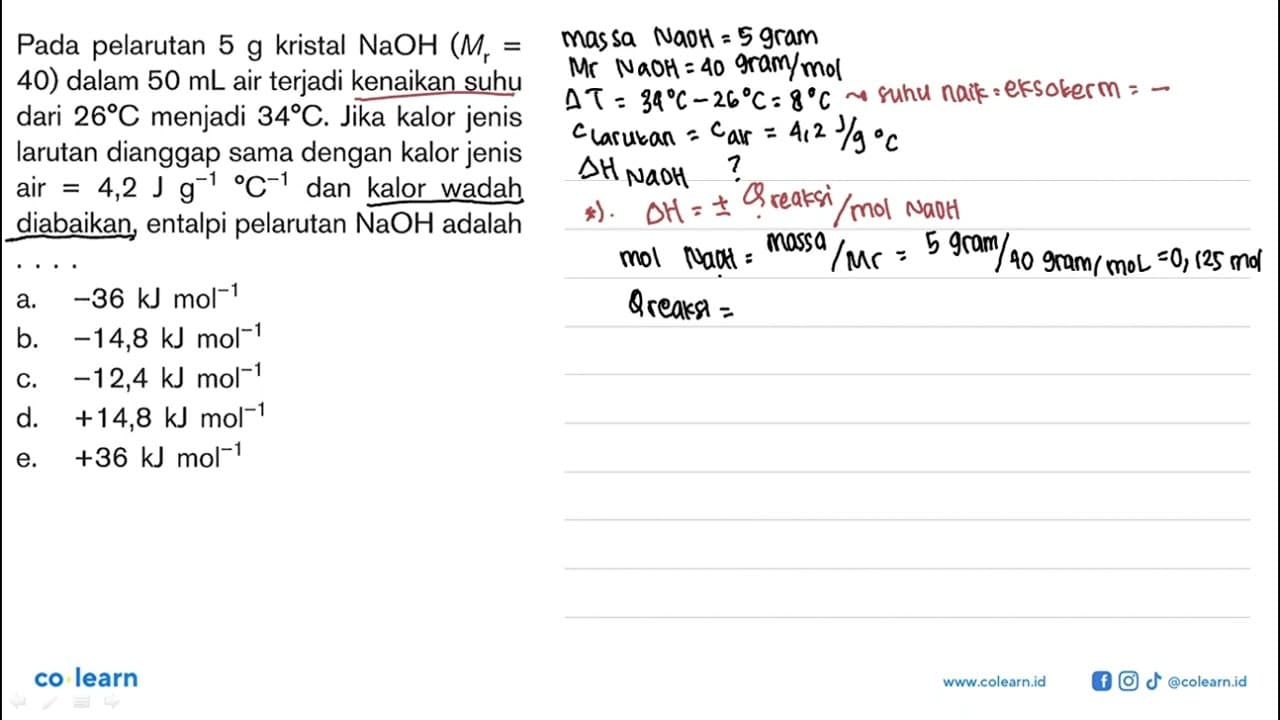 Pada pelarutan 5 g kristal NaOH (Mr =
40) dalam 50 mL air terjadi kenaikan suhu
dari 26°C menjadi 34°C. Jika kalor jenis
larutan dianggap sama dengan kalor jenis
air = 4,2 J g⁻¹ °C⁻¹ dan kalor wadah
diabaikan, entalpi pelarutan NaOH adalah
. . . .
a. −36 kJ mol⁻¹
b. −14,8 kJ mol⁻¹
c. −12,4 kJ mol⁻¹
d. +14,8 kJ mol⁻¹
e. +36 kJ mol⁻¹
massa NaOH = 5 gram
Mr NaOH = 40 gram/mol
ΔT = 34°C − 26°C = 8°C → suhu naik = eksoterm = −
C larutan = C air = 4,2 J/g°C
ΔH NaOH ?
*). ΔH = ± Q reaksi/mol NaOH
mol NaOH = massa/Mr = 5 gram/40 gram/mol = 0,125 mol
Q reaksi =
co learn
www.colearn.id
@colearn.id